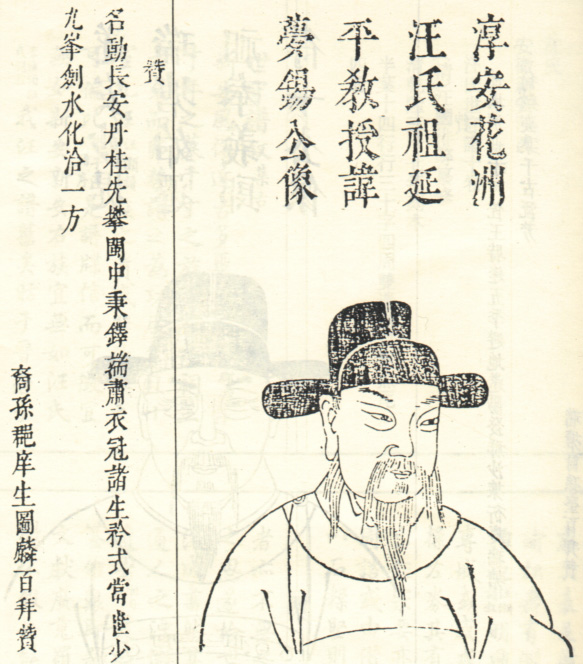 淳安花洲
汪氏祖延
平教授諱
夢錫公像
贊
名動長安丹桂先攀閩中秉鐸揣肅衣冠諸生矜式當世少
九峯劍水化洽一方
裔孫邑庠生圖麟百拜贊